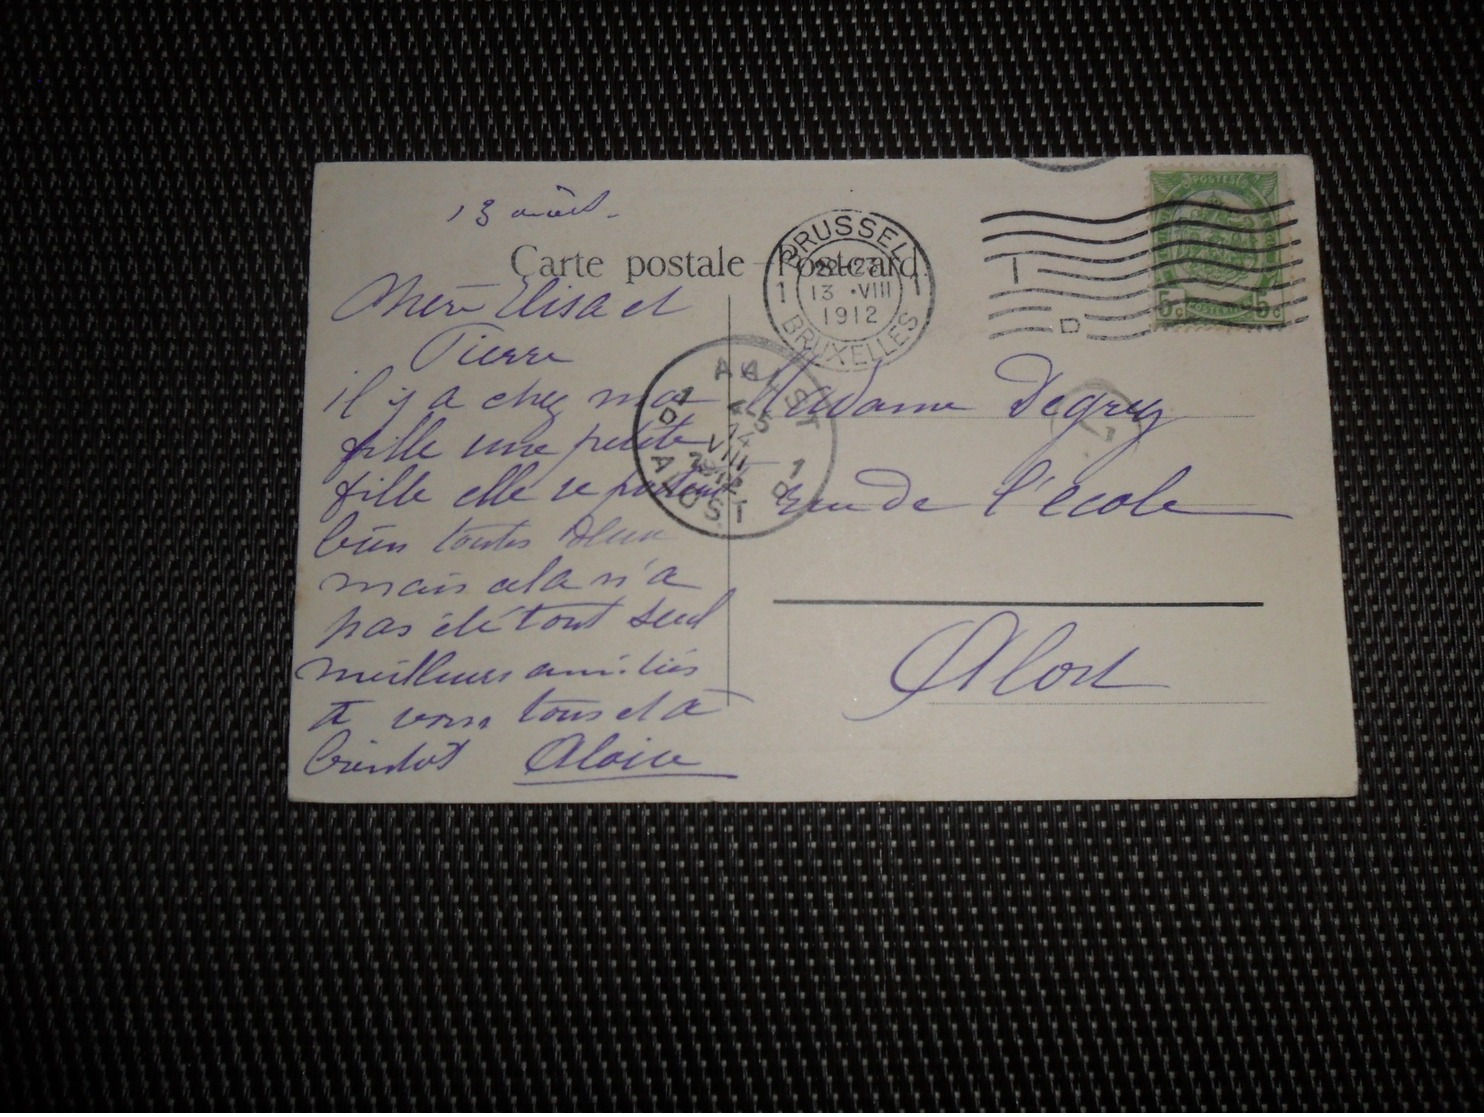 13 août.
Carte postale - Postcard.
Elisa et
Pierre
il y a chez ma
fille une petite
fille elle se portent
bien toutes deux
mais cela n'a
pas été tout seul
meilleures amitiés
à vous tous et à
bientot
BRUSSEL
22-23
1 13 ·VIII 1
1912
BRUXELLES
POSTES
5c 5c
POSTERIJEN
1
D
AALST
1 D
14
VIII
1912
1 D
ALOST
Madame Degrey
rue de l'école
Alost